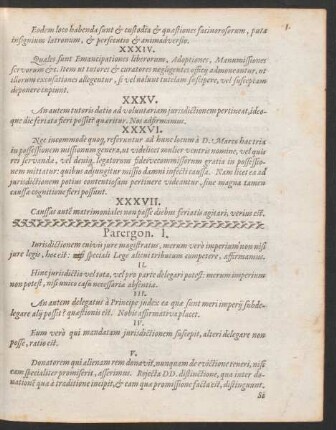 Eodem loco habenda sunt & custodia & quæstiones facinorosorum, putà
insignium latronum, & persecutio & animadversio.
XXXIV.
Quales sunt Emancipationes liberorum, Adoptiones, Manumissiones
servorum &c. Item ut tutores & curatores negligentes officij admoneantur, ut
illorum excusationes allegentur, si vel nolunt tutelam suscipere, vel susceptam
deponere cupiunt.
XXXV.
An autem tutoris datio ad voluntariam jurisdictionem pertineat, ideo-
que die feriato fieri possit quæritur. Nos adfirmamus.
XXXVI.
Nec incommodè quoq; referuntur ad hunc locum à D. Marco hæc tria
in possessionem missionum genera, ut videlicet mulier ventris nomine, vel quis
rei servandæ, vel deniq; legatorum fideivecommissorum gratia in possessio-
nem mittatur: quibus adjungitur missio damni infecti caussa. Nam licet ea ad
jurisdictionem potius contentiosam pertinere videantur, sine magna tamen
caussa cognitione fieri possunt.
XXXVII.
Caussas autē matrimoniales non posse diebus feriatis agitari, verius est.
Parergon. I.
Iurisdictionem cuivis jure magistratui, merum verò imperium non nisi
jure legis, hoc est: speciali Lege alicui tributum competere, affirmamus.
II.
Hinc jurisdictio vel tota, vel pro parte delegari potest: merum imperium
non potest, nisi unico casu necessaria absentia.
III.
An autem delegatus à Principe judex ea quæ sunt meri imperij subde-
legare alij possit? quæstionis est. Nobis affirmativa placet.
IV.
Eum verò qui mandatam jurisdictionem suscepit, alteri delegare non
posse, ratio est.
V.
Donatorem qui alienam rem donavit, nunquam de evictione teneri, nisi
eam specialiter promiserit, asserimus. Rejecta DD. distinctione, qua inter do-
nationē quæ à traditione incipit, & eam quæ promissione facta est, distinguunt.